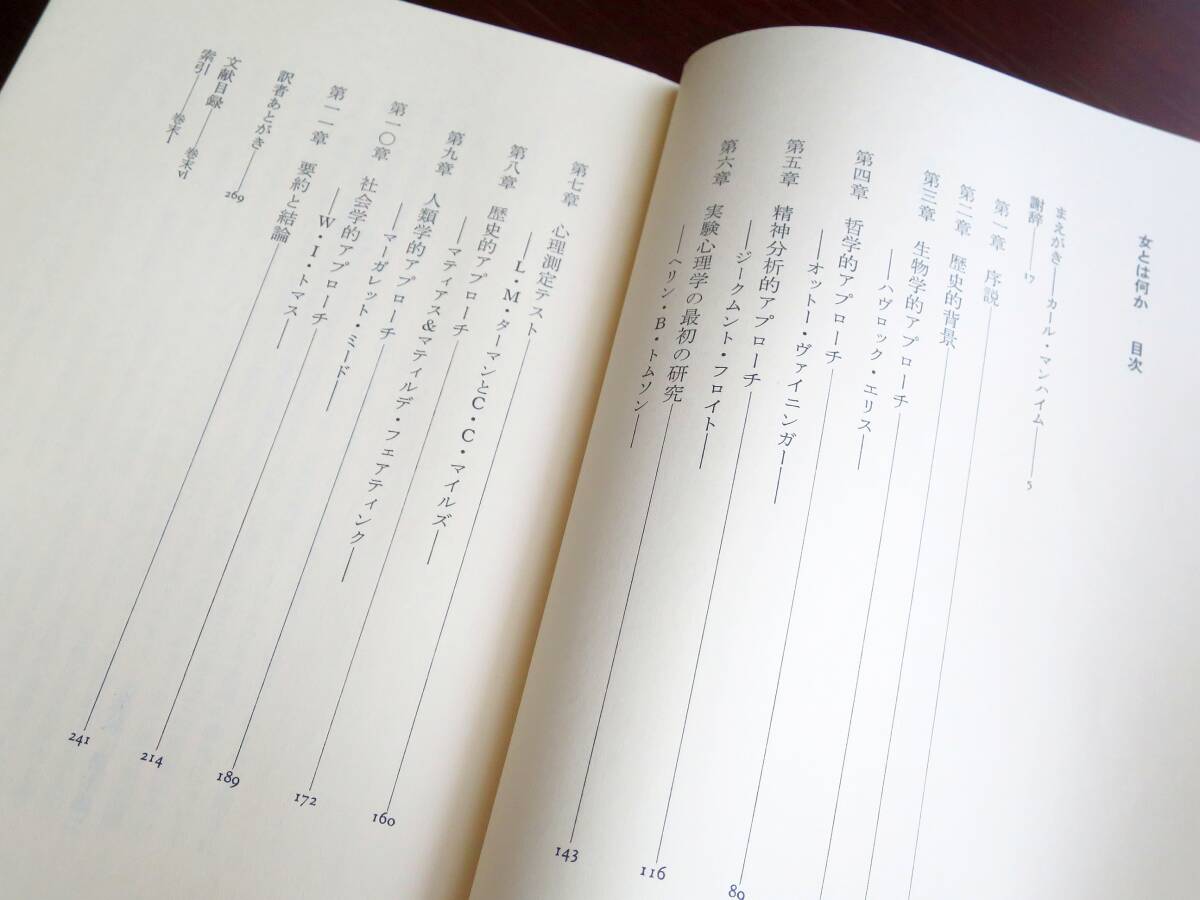 女とは何か　目次
まえがき——カール・マンハイム——5
謝辞——17
第一章　序説——
第二章　歴史的背景——
第三章　生物学的アプローチ——
——ハヴロック・エリス——
第四章　哲学的アプローチ——89
——オットー・ヴァイニンガー——
第五章　精神分析的アプローチ——116
——ジークムント・フロイト——
第六章　実験心理学の最初の研究——143
——ヘリン・B・トムソン——
第七章　心理測定テスト——160
——L・M・ターマンとC・C・マイルズ——
第八章　歴史的アプローチ——172
——マティアス&マティルデ・フェアティンク——
第九章　人類学的アプローチ——189
——マーガレット・ミード——
第一〇章　社会学的アプローチ——214
——W・I・トマス——
第一一章　要約と結論——241
訳者あとがき——269
文献目録——巻末vi
索引——巻末i